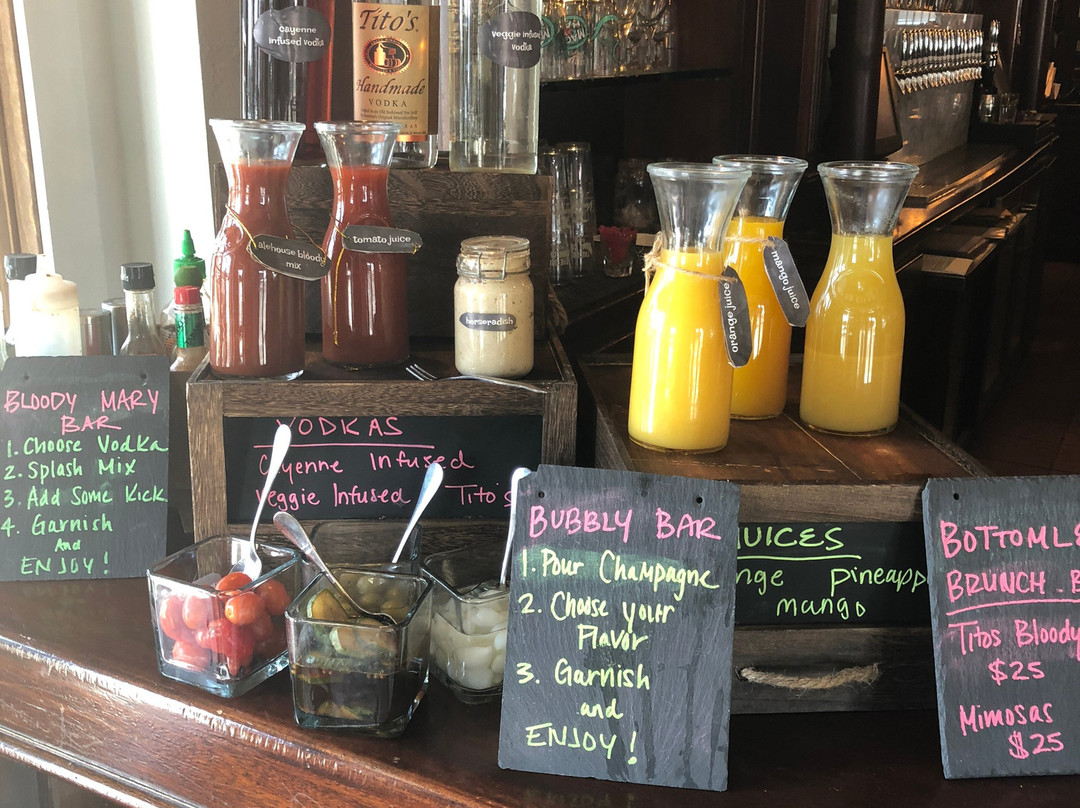 cayenne
infused vodka
Tito's
Handmade
VODKA
veggie infused
vodka
alehouse bloody
mix
tomato juice
horseradish
orange juice
mango juice
BLOODY MARY
BAR
1. Choose Vodka
2. Splash Mix
3. Add Some Kick
4. Garnish
And
ENJOY!
VODKAS
Cayenne Infused
Veggie Infused Tito's
BUBBLY BAR
1. Pour Champagne
2. Choose your
Flavor
3. Garnish
and
ENJOY!
UICES
nge pineapp
mango
BOTTOML
BRUNCH B
Titos Bloody
$25
Mimosas
$25